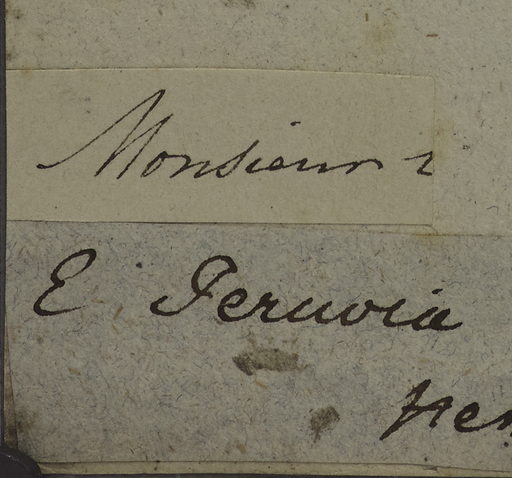 Monsieur
E Peruvia